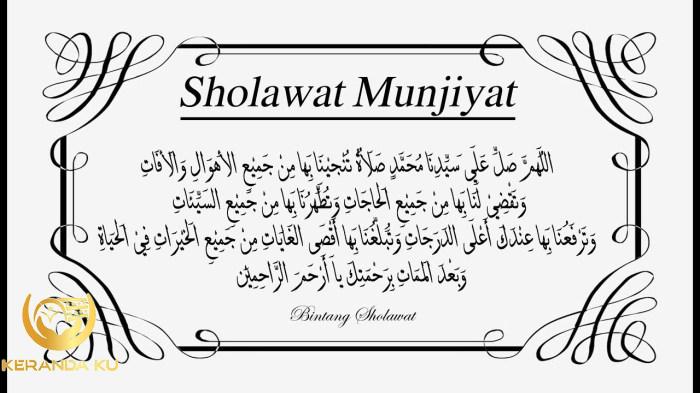 Sholawat Munjiyat
اللَّهُمَّ صَلِّ عَلَى سَيِّدِنَا مُحَمَّدٍ صَلَاةً تُنْجِيْنَا بِهَا مِنْ جَمِيْعِ الْأَهْوَالِ وَالْآفَاتِ
وَتَقْضِيْ لَنَا بِهَا مِنْ جَمِيْعِ الْحَاجَاتِ وَتُطَهِّرُنَا بِهَا مِنْ جَمِيْعِ السَّيِّئَاتِ
وَتَرْفَعُنَا بِهَا عِنْدَكَ أَعْلَى الدَّرَجَاتِ وَتُبَلِّغُنَا بِهَا أَقْصَى الْغَايَاتِ مِنْ جَمِيْعِ الْخَيْرَاتِ فِيْ الْحَيَاةِ
وَبَعْدَ الْمَمَاتِ بِرَحْمَتِكَ يَا أَرْحَمَ الرَّاحِمِيْنَ
Bintang Sholawat
KERANDA KU